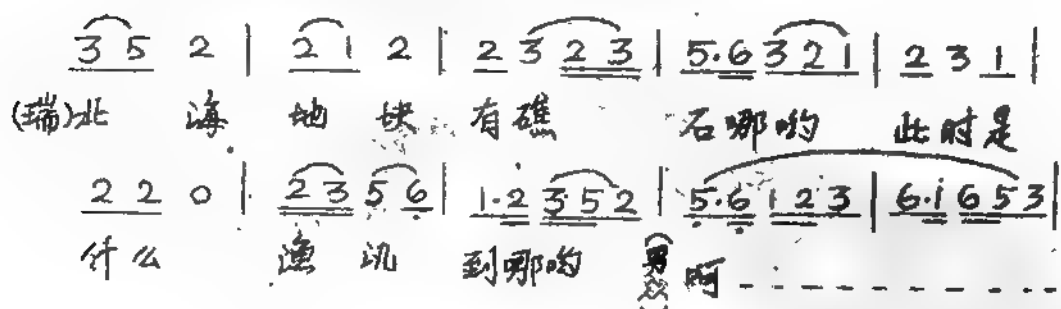 3 5 2 | 2 1 2 | 2 3 2 3 | 5·6 3 2 1 | 2 3 1 |
(瑞)北 海 地 块 有礁 石哪哟 此时是
2 2 0 | 2 3 5 6 | 1·2 3 5 2 | 5·6 1 2 3 | 6·i 6 5 3 |
什么 渔 汛 到哪哟 男众 啊 - - - - - - - - -